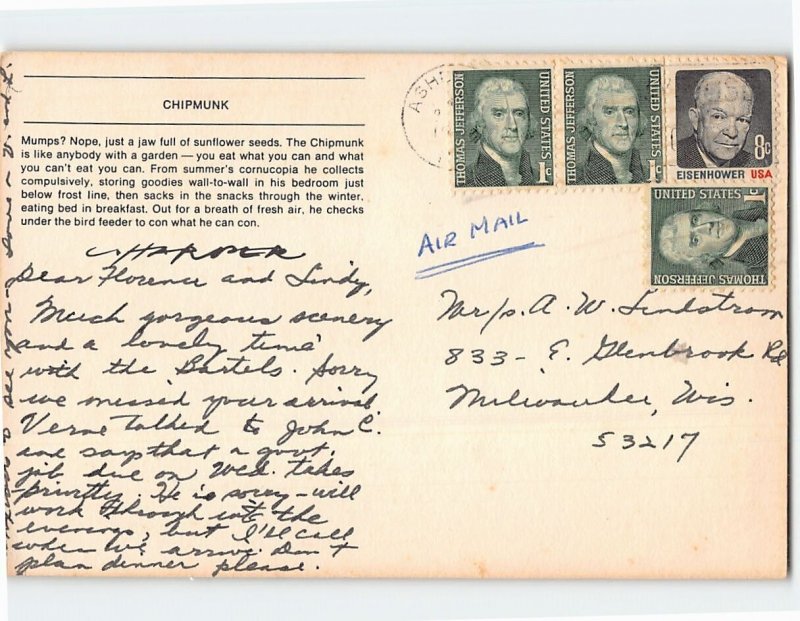 CHIPMUNK
Mumps? Nope, just a jaw full of sunflower seeds. The Chipmunk
is like anybody with a garden — you eat what you can and what
you can't eat you can. From summer's cornucopia he collects
compulsively, storing goodies wall-to-wall in his bedroom just
below frost line, then sacks in the snacks through the winter,
eating bed in breakfast. Out for a breath of fresh air, he checks
under the bird feeder to con what he can con.
Dear Florence and Lindy,
Much gorgeous scenery
and a lovely time
with the Bartels. Sorry
we missed your arrival.
Verne talked to John C.
and says that a govt.
job due on Wed. takes
priority. He is sorry - will
work through into the
evenings, but I'll call
when we arrive. Don't
plan dinner please.
see you
ASH
THOMAS JEFFERSON
UNITED STATES
1c
THOMAS JEFFERSON
UNITED STATES
1c
8c
EISENHOWER USA
UNITED STATES
1c
THOMAS JEFFERSON
AIR MAIL
Mr/s. A. W. Lindstrom
833 - E. Glenbrook Rd
Milwaukee, Wis.
53217